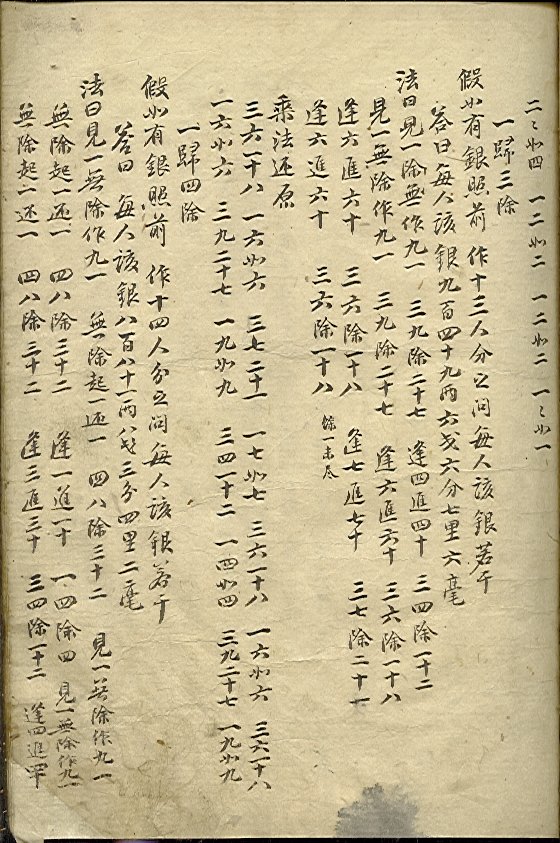 二二如四 一二如二 一二如二 一一如一
一歸三除
假如有銀照前 作十三人分之問每人該銀若干
答曰每人該銀九百四十九兩六戔六分七里六毫
法曰見一除無作九一 三九除二十七 逢四進四十 三四除一十二
見一無除作九一 三九除二十七 逢六進六十 三六除一十八
逢六進六十 三六除一十八 逢七進七十 三七除二十一
逢六進六十 三六除一十八 餘一未尽
乘法还原
三六一十八 一六如六 三七二十一 一七如七 三六一十八 一六如六 三六一十八
一六如六 三九二十七 一九如九 三四一十二 一四如四 三九二十七 一九如九
一歸四除
假如有銀照前 作十四人分之問每人該銀若干
答曰 每人該銀八百八十一兩八戔三分四里二毫
法曰見一無除作九一 無除起一还一 四八除三十二 見一無除作九一
無除起一还一 四八除三十二 逢一進一十 一四除四 見一無除作九一
無除起一还一 四八除三十二 逢三進三十 三四除一十二 逢四進四十